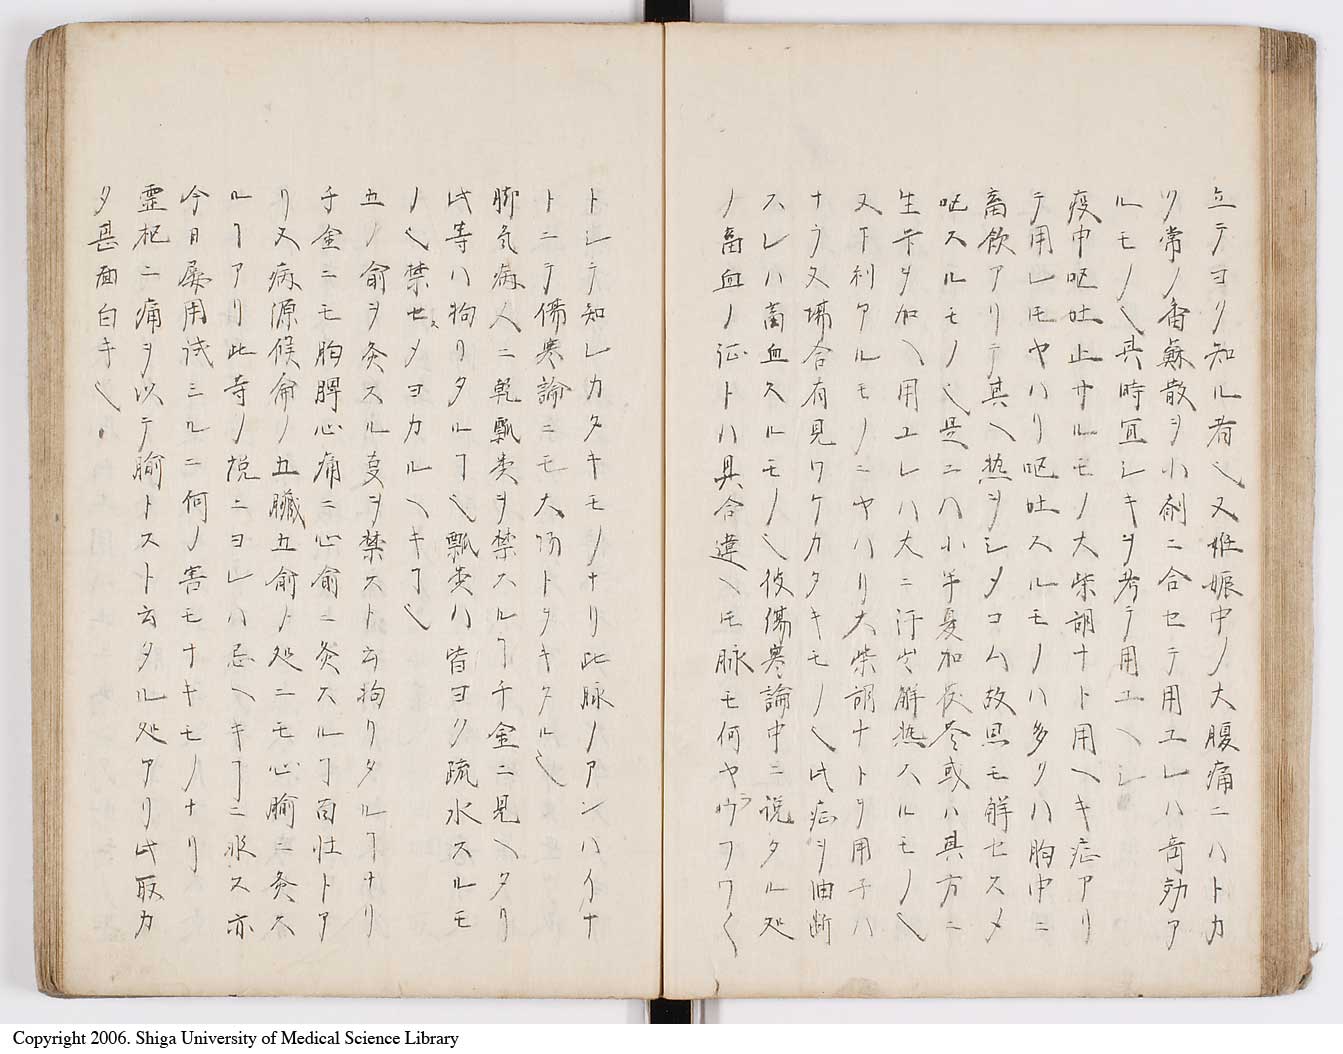 立テヨリ知ル者也又姙娠中ノ大腹痛ニハトカ
ク常ノ香蘇散ヲ小剤ニ合セテ用ユレハ奇効ア
ルモノ也其時宜シキヲ考テ用ユヘシ
疫中呕吐止サルモノ大柴胡ナト用ヘキ症アリ
テ用レモヤハリ呕吐スルモノハ多クハ胸中ニ
畜飲アリテ其ヘ热ヲシメコム故思モ解セスメ
呕スルモノ也是ニハ小半夏加茯苓或ハ其方ニ
生芐ヲ加ヘ用ユレハ大ニ汗出解热スルモノ也
又下利アルモノニヤハリ大柴胡ナトヲ用子ハ
ナラヌ場合有見ワケカタキモノ也此症ヲ油断
スレハ畜血スルモノ也彼傷寒論中ニ説タル処
ノ畜血ノ证トハ具合違ヘモ脉モ何ヤウラワク
トシテ知レカタキモノナリ此脉ノアンハイナ
トニテ傷寒論ニモ大切トタキタル也
脚気病人ニ乾瓢类ヲ禁スルヿ千金ニ見ヘタリ
此等ハ拘リタルヿ也瓢类ハ皆ヨク疏水スルモ
ノ也禁セスメヨカルヘキヿ也
五ノ俞ヲ灸スル㕝ヲ禁スト云拘リタルヿナリ
千金ニモ胸脾心痛ニ心俞ニ灸スルヿ百壮トア
リ又病源候侖ノ五臓五俞ノ処ニモ心腧ニ灸ス
ルヿアリ此寺ノ説ニヨレハ忌ヘキヿニ非ス亦
今日屡用試ミルニ何ノ害モナキモノナリ
霊枢ニ痛ヲ以テ腧トスト云タル処アリ此取カ
タ甚面白キ也
Copyright 2006. Shiga University of Medical Science Library